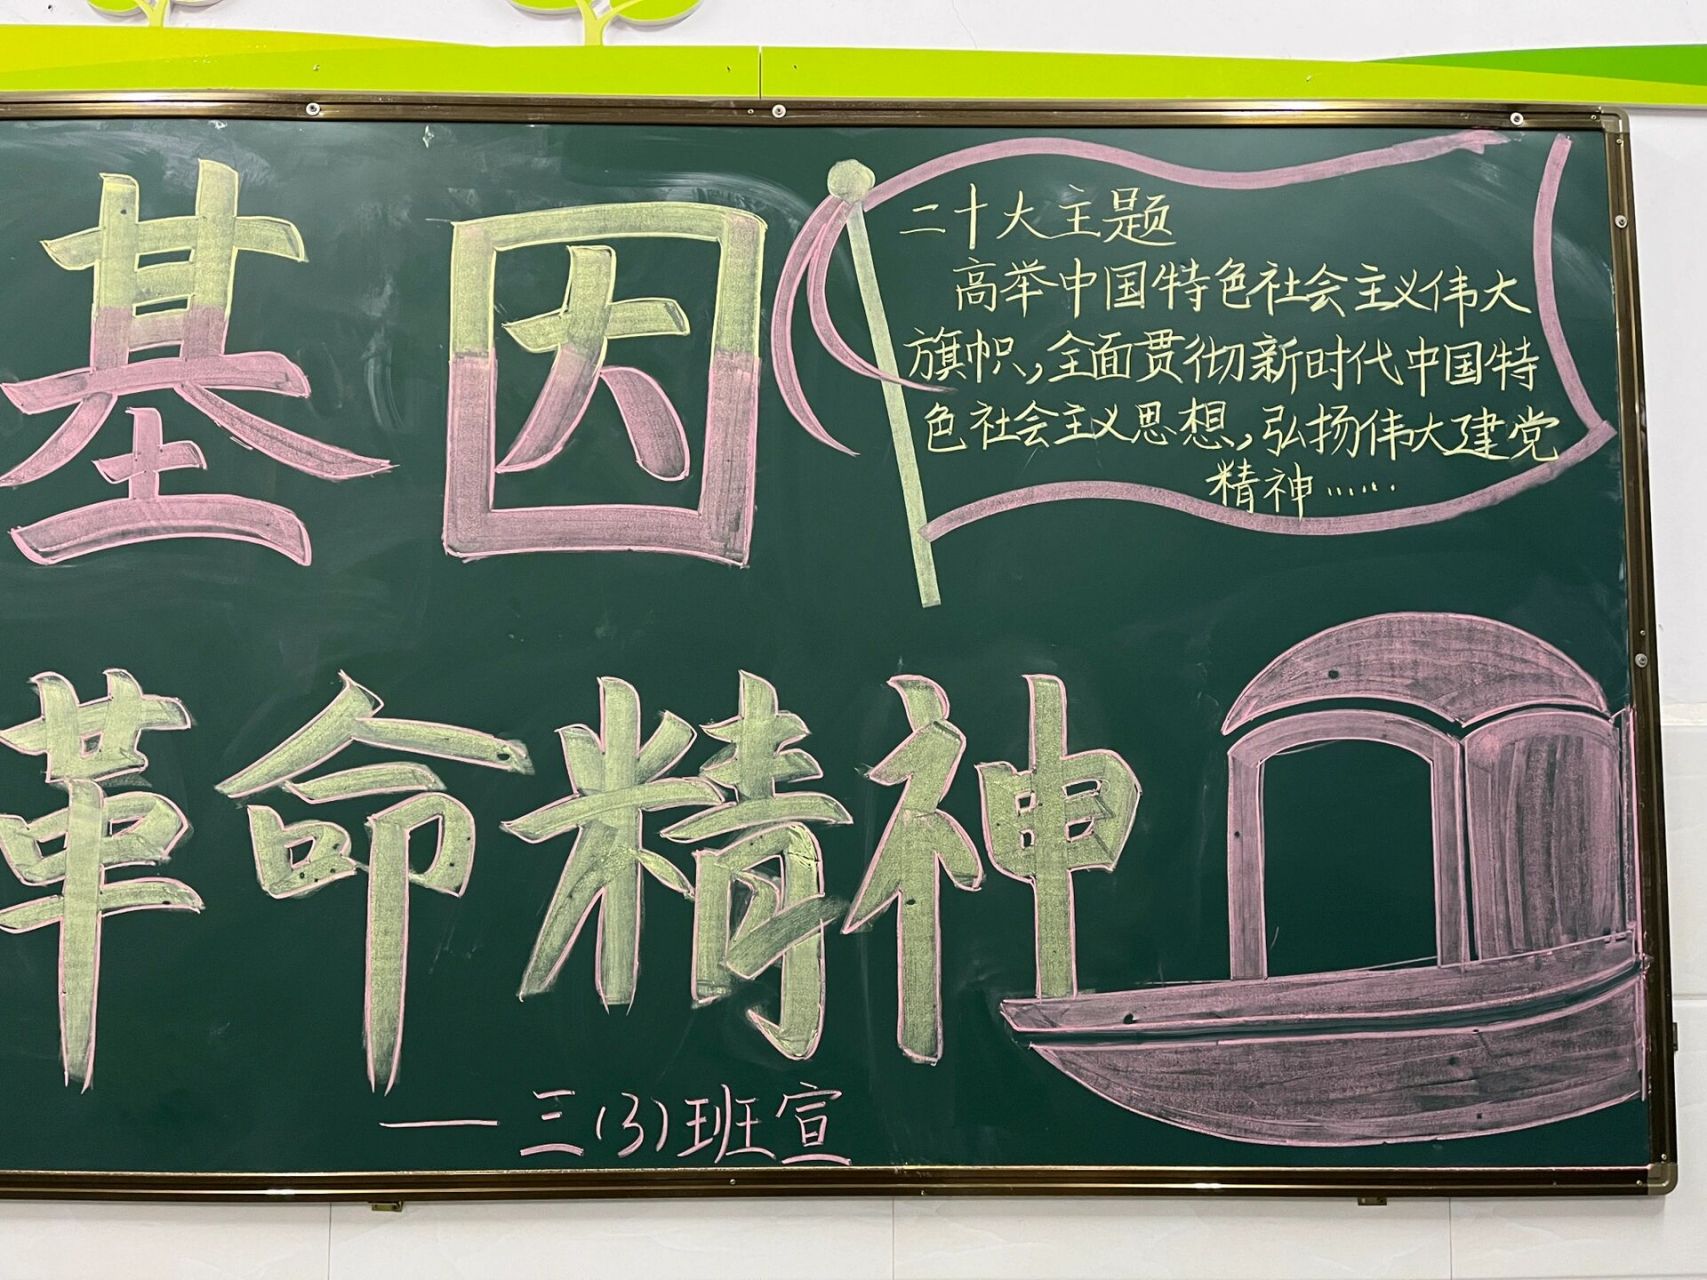 基因
二十大主题
高举中国特色社会主义伟大
旗帜,全面贯彻新时代中国特
色社会主义思想,弘扬伟大建党
精神……
革命精神
—三(3)班宣